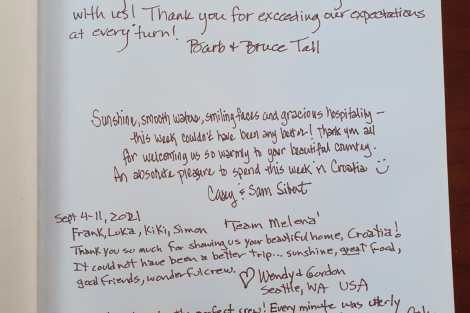 with us! Thank you for exceeding our expectations
at every turn!
Barb & Bruce Tall
Sunshine, smooth waters, smiling faces and gracious hospitality –
this week couldn't have been any better! Thank you all
for welcoming us so warmly to your beautiful country.
An absolute pleasure to spend this week in Croatia ☺
Casey & Sam Sibert
Sept 4-11, 2021
Frank, Luka, Kiki, Simon 'Team Melena'
Thank you so much for showing us your beautiful home, Croatia!
It could not have been a better trip... sunshine, great food,
good friends, wonderful crew. ♡ Wendy & Gordon
Seattle, WA USA
perfect crew! Every minute was utterly